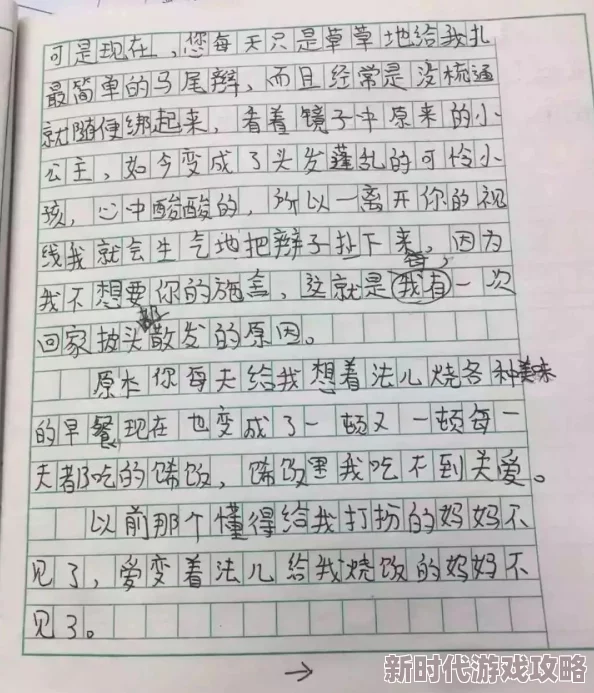 可是现在，您每天只是草草地给我扎
最简单的马尾辫，而且经常是没梳通
就随便绑起来，看着镜子中原来的小
公主，如今变成了头发蓬乱的可怜小
孩，心中酸酸的，所以一离开你的视
线我就会生气地把辫子扯下来，因为
我不想要你的施舍，这就是我每一次
回家披头散发的原因。
原本你每天给我想着法儿烧各种美味
的早餐现在也变成了一顿又一顿每一
天都吃的馊饭，馊饭里我吃不到关爱。
以前那个懂得给我打扮的妈妈不
见了，爱变着法儿给我烧饭的妈妈不
见了。
→
新时代游戏攻略